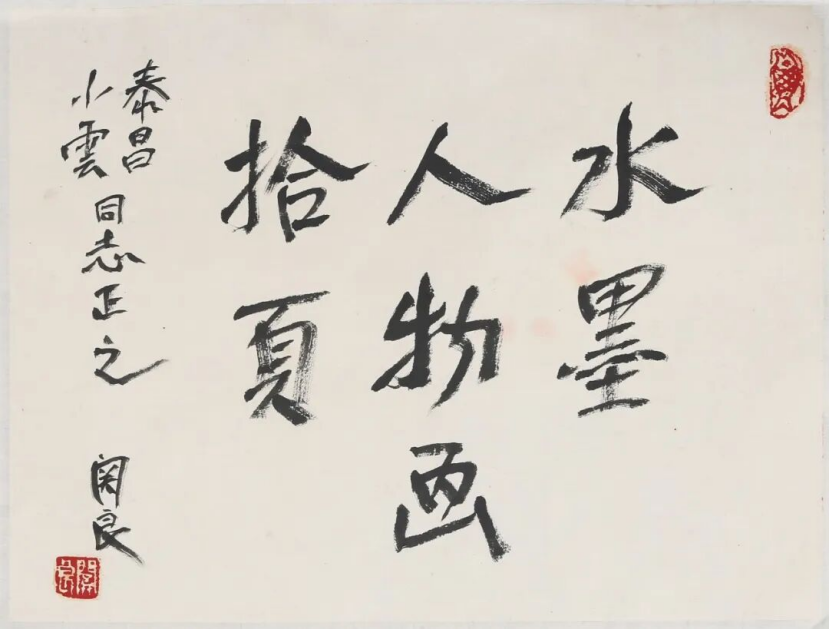 水墨
人物画
拾頁
泰昌
小雲
同志正之
関良